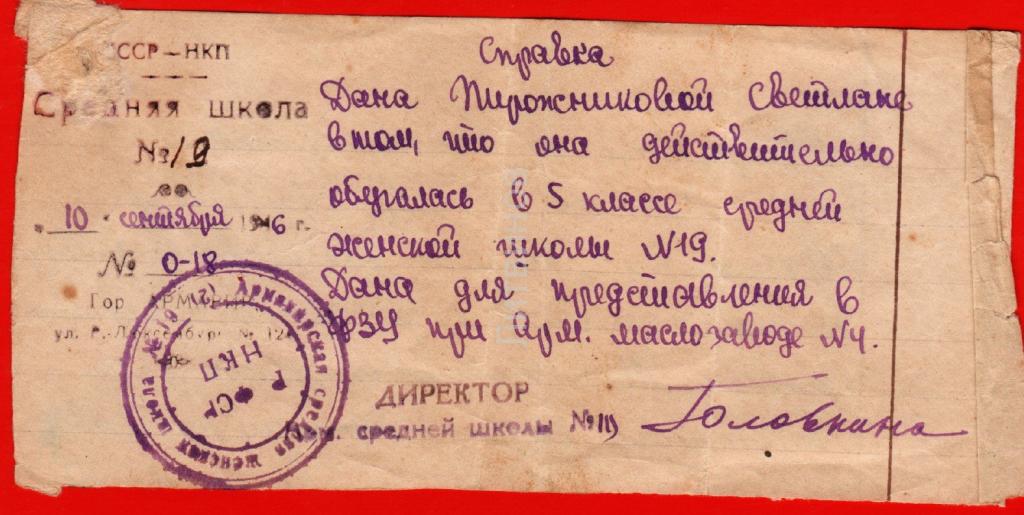 СССР — НКП
Средняя школа
№ 19
"10" сентября 1946 г.
№ 0-18
Гор. АРМАВИР
ул. Р.-Люксембург № 12
Справка
Дана Пирожниковой Светлане
в том, что она действительно
обучалась в 5 классе средней
женской школы N19.
Дана для представления в
ФЗУ при Арм. маслозаводе N4.
ДИРЕКТОР
средней школы № 19
Головнина
Армавирская средняя женская школа № 19
РСФСР
НКП